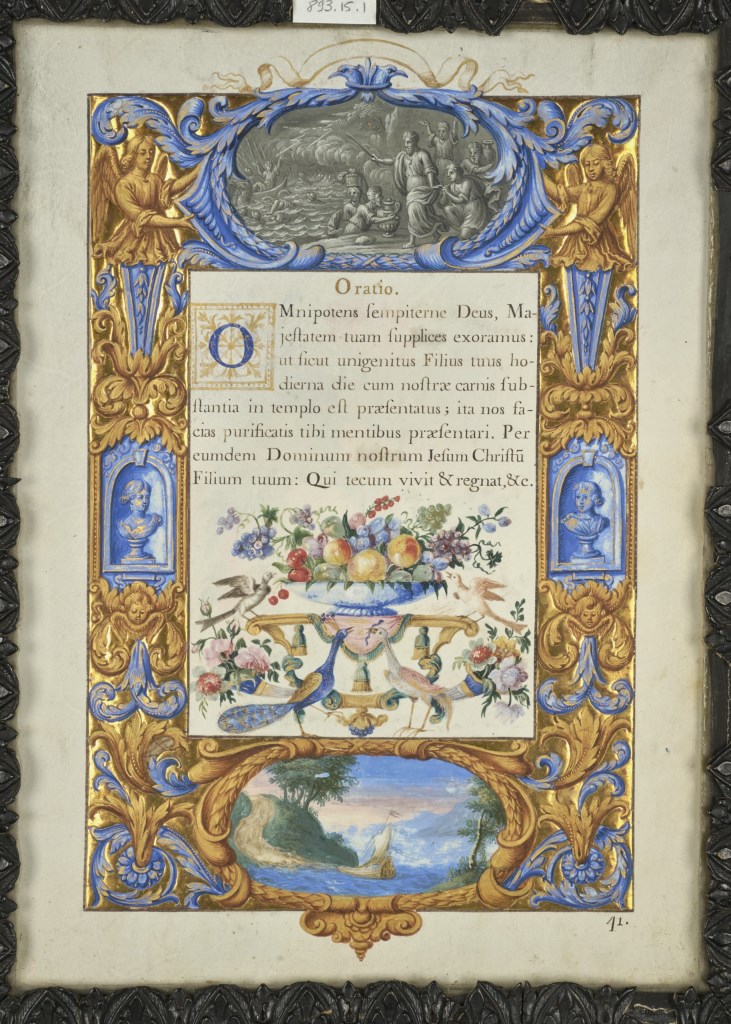 893.15.1
Oratio.
OMnipotens ſempiterne Deus, Ma-
jeſtatem tuam ſupplices exoramus:
ut ſicut unigenitus Filius tuus ho-
dierna die cum noſtræ carnis ſub-
ſtantia in templo eſt præſentatus; ita nos fa-
cias purificatis tibi mentibus præſentari. Per
eumdem Dominum noſtrum Jeſum Chriſtū
Filium tuum: Qui tecum vivit & regnat, &c.
41.